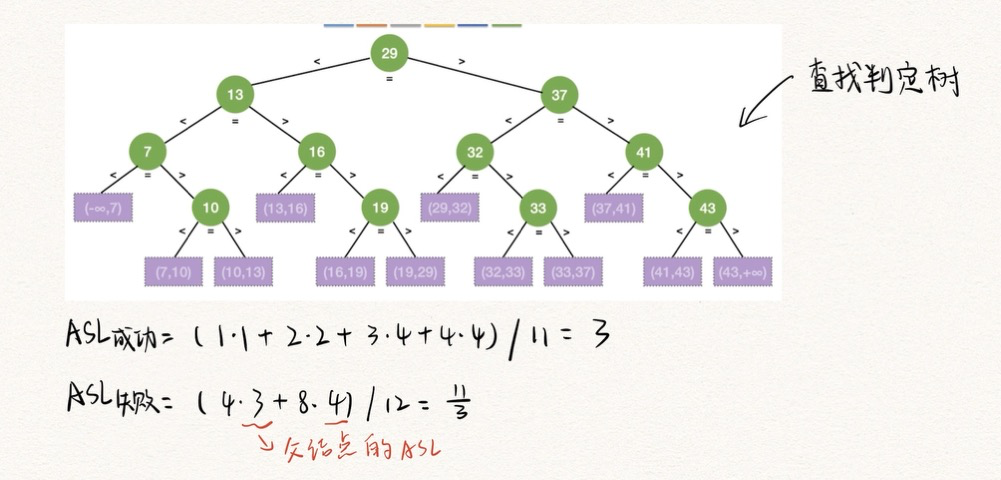 29
< = >
查找判定树
13 37
< = > < = >
7 16 32 41
< = > < = > < = > < = >
(-∞,7) 10 (13,16) 19 (29,32) 33 (37,41) 43
< = > < = > < = > < = >
(7,10) (10,13) (16,19) (19,29) (32,33) (33,37) (41,43) (43,+∞)
ASL成功 = (1·1 + 2·2 + 3·4 + 4·4) / 11 = 3
ASL失败 = (4·3 + 8·4) / 12 = 11/3
父结点的ASL